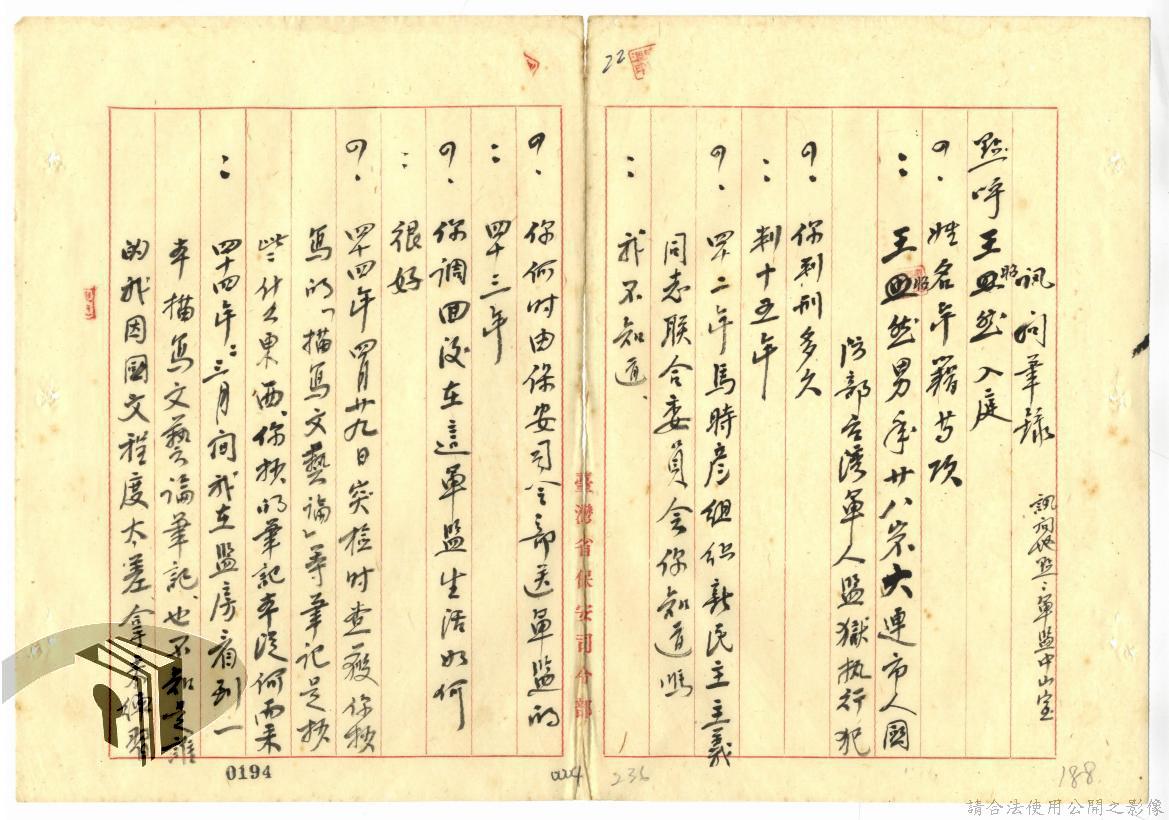 訊問筆錄
訊問地點：軍監中山室
點呼王照然入庭
問、姓名年籍等項
：王照然男年廿八歲大連市人國
防部台灣軍人監獄執行犯
問：你判刑多久
：判十五年
問、四十二年馬時彥組織新民主主義
同志聯合委員會你知道嗎
：我不知道、
22
236
188
臺灣省保安司令部
問、你何時由保安司令部送軍監的
：四十三年
問、你調回後在這軍監生活如何
：很好
問、四十四年四月廿九日突檢時查獲你抄
寫的「描寫文藝論」等筆記是抄
些什么東西、你抄的筆記本從何而來
：四十四年二、三月間我在監房看到一
本描寫文藝論筆記、也不知是誰
的我因國文程度太差拿來練習
0194
請合法使用公開之影像